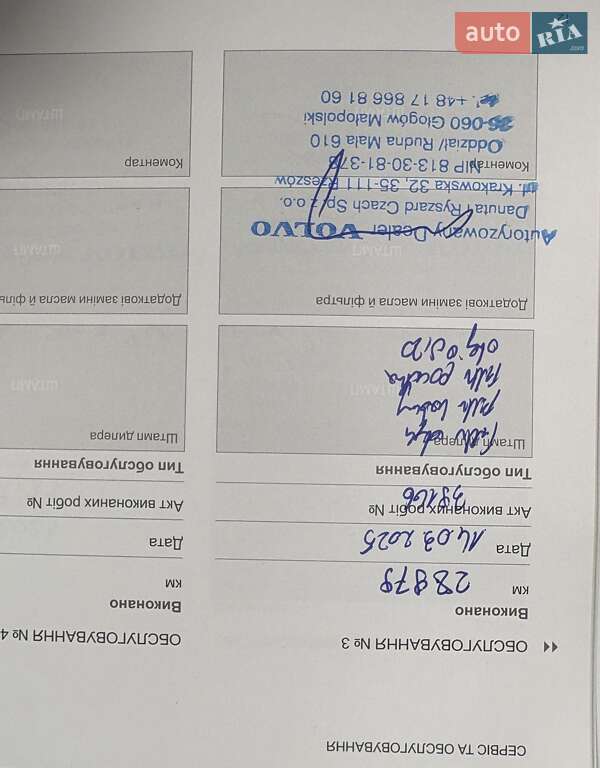 auto RIA.com
СЕРВІС ТА ОБСЛУГОВУВАННЯ
ОБСЛУГОВУВАННЯ № 3
Виконано
км 28879
Дата 14.03.2025
Акт виконаних робіт №
Тип обслуговування
Штамп дилера
olej 0W20
Додаткові заміни масла й фільтра
ШТАМП
Autoryzowany Dealer VOLVO
Danuta i Ryszard Czach Sp. z o.o.
ul. Krakowska 32, 35-111 Rzeszów
NIP 813-30-81-378
Коментар
Oddział/ Rudna Mała 610
36-060 Głogów Małopolski
tel. +48 17 866 81 60
ОБСЛУГОВУВАННЯ № 4
Виконано
км
Дата
Акт виконаних робіт №
Тип обслуговування
Штамп дилера
ШТАМП
Додаткові заміни масла й фільт
ШТАМП
Коментар
ШТАМП